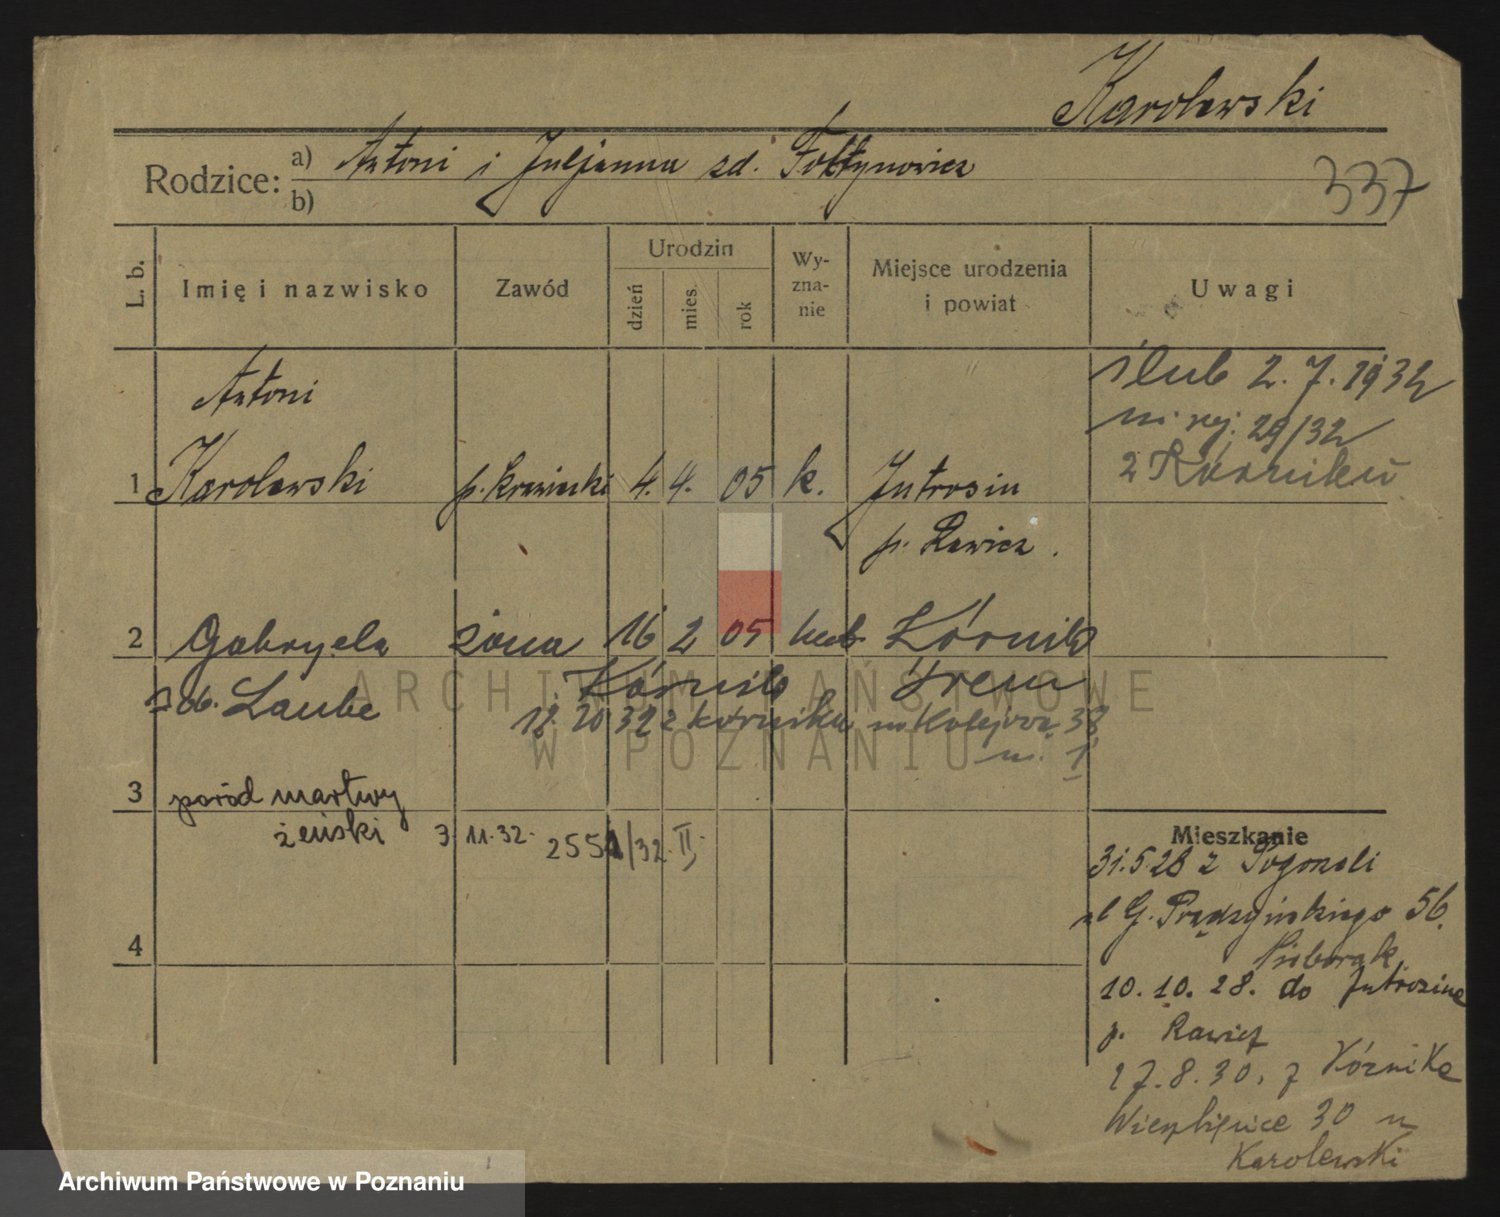 Karolewski
Rodzice: a) Antoni i Juljanna zd. Foltynowicz
b)
337
L. b.
Imię i nazwisko
Zawód
Urodzin
dzień
mies.
rok
Wy-
zna-
nie
Miejsce urodzenia
i powiat
Uwagi
Antoni
1 Karolewski p. krawiecki 4. 4. 05 k. Jutrosin
p. Rawicz.
ślub 2. 7. 1932
nr rej. 29/32
z Kórniku
2 Gabryela żona 16 2 05 kat. Kórnik
zd. Laube Kórnik Śrem
18. 20 32 z Kórnika Kolejowa 38
m. 1
3 poród martwy
żeński 3 11.32. 2551/32. II.
4
Mieszkanie
31.5.28 z
ul G. Prądzyńskiego 56.
10.10.28. do Jutrosina
p. Rawicz
27.8.30. z Kórnika
Wierzbięcice 30 u
Karolewski
ARCHIWUM PAŃSTWOWE
W POZNANIU
Archiwum Państwowe w Poznaniu